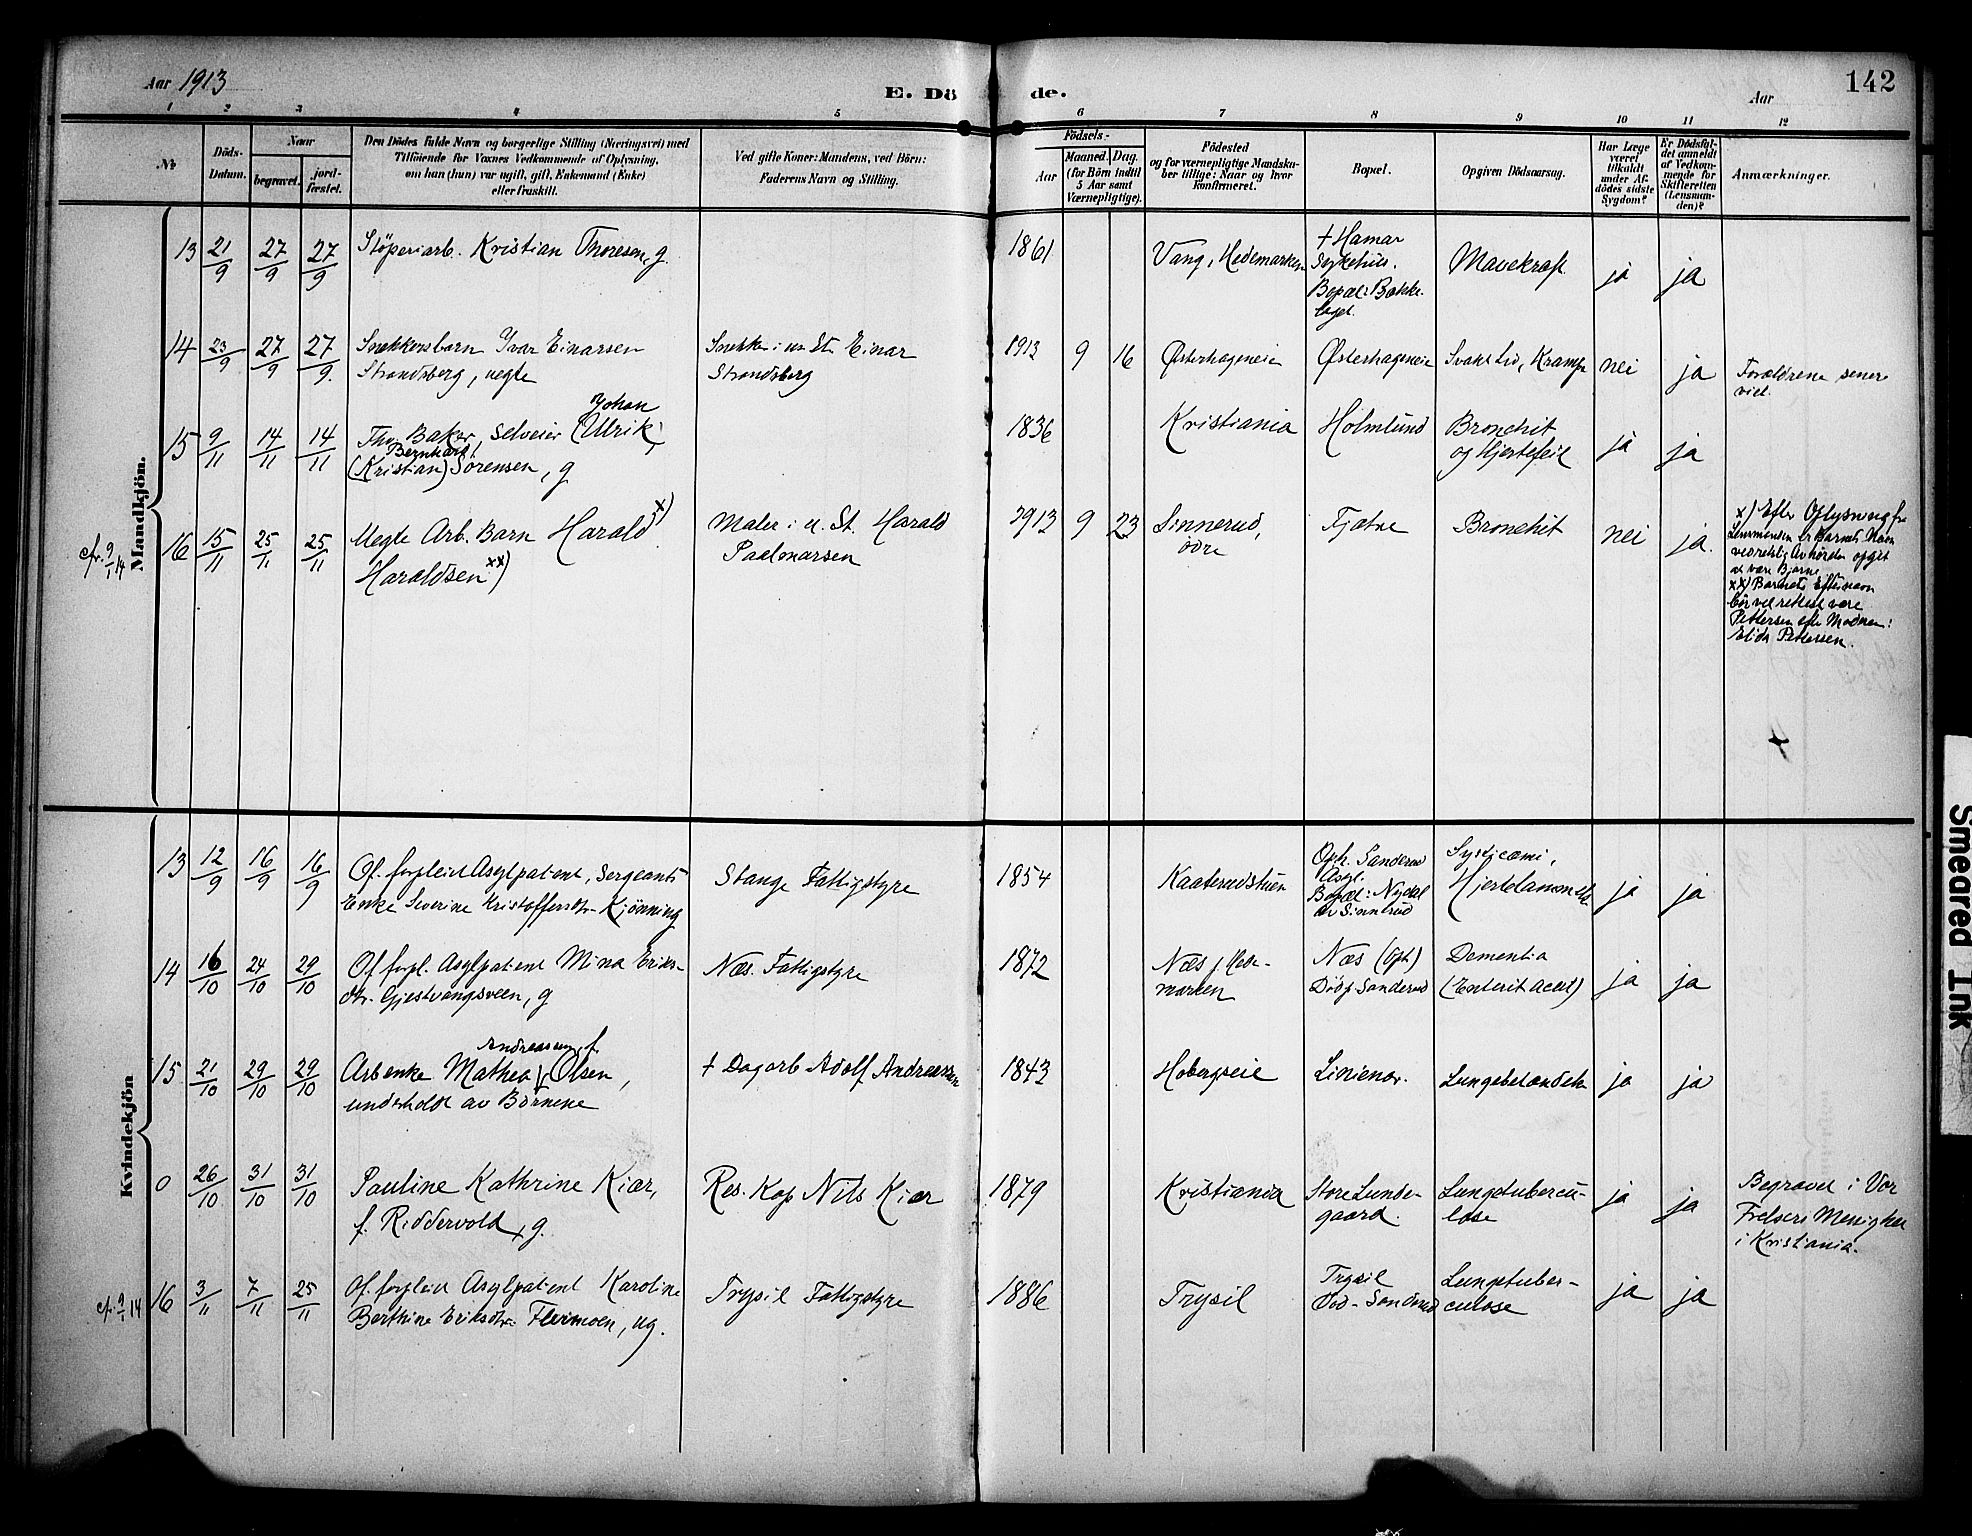 Aar 1913
E. Dö de.
Aar
142
1 2 3 4 5 6 7 8 9 10 11 12
No
Döds-Datum.
Naar
begravet.
jord-fæstet.
Den Dödes fulde Navn og borgerlige Stilling (Næringsvei) med
Tilföiende for Voxnes Vedkommende af Oplysning,
om han (hun) var ugift, gift, Enkemand (Enke)
eller fraskilt.
Ved gifte Koner: Mandens, ved Börn:
Faderens Navn og Stilling.
Födsels-
Aar
Maaned. Dag.
(for Börn indtil
5 Aar samt
Værnepligtige).
Födested
og for værnepligtige Mandska-
ber tillige: Naar og hvor
konfirmeret.
Bopæl.
Opgiven Dödsaarsag.
Har Læge
været
tilkaldt
under Af-
dödes sidste
Sygdom?
Er Dödsfal-
det anmeldt
af Vedkom-
mende for
Skifteretten
(Lensman-
den)?
Anmærkninger.
Mandkjön.
13 21/9 27/9 27/9
Stöperiarb. Kristian Thoresen, g.
1861
Vang, Hedemarken
† Hamar
Sykehus.
Bopæl: Bække-
laget.
Mavekræft
ja ja
14 23/9 27/9 27/9.
Snekkersbarn Ivar Einarsen
Strandsberg, uegte
Snekker i u. St. Einar
Strandsberg
1913 9 16
Østerhageneie
Østerhageneie
Svakt Liv, Krampe
nei ja
Forældrene senere
viet.
15 9/11 14/11 14/11
Johan
Thv. Baker, Selveier (Ulrik)
Bernhard
(Kristian) Sörensen, g
1836
Kristiania
Holmlund
Bronchit
og Hjertefeil
ja ja
cfr. 9/1 14
16 15/11 25/11 25/11
Uegte Arb. Barn Harald x)
Haraldsen xx)
Maler i u. St. Harald
Paulonarsen
1913 9 23
Sinnerud,
ödre
Fjætre
Bronchit
nei ja.
x) Efter Oplysning fra
Lensmanden er Barnets Navn
ved retslig Avhörelse opgit
at være Bjarne
xx) Barnets Efternavn
bör vel rettest være
Pettersen efter Moderen:
Elida Pettersen.
Kvindekjön
13 12/9 16/9 16/9
Of. forpleiet Asylpatient, Sergeants
Enke Severine Kristoffersdtr Kjönning
Stange Fattigstyre
1854
Kaaterudstuen
Oph. Sanderud
Asyl.
Bopæl: Nydal
av Sinnerud
Septicæmi,
Hjertelammelse
ja ja
14 16/10 24/10 29/10
Of. forpl. Asylpatient Mina Eriks-
dtr. Gjestvangsveen, g
Næs. Fattigstyre
1872
Næs, Hede-
marken
Næs (Oph)
Död på Sanderud
Dementia
(Enterit acut)
ja ja
15 21/10 29/10 29/10
Andreassen f.
Arb enke Mathea Olsen,
underholdt av Börnene
† Dagarb Adolf Andreassen
1843
Hobergseie
Linienor.
Lungebetændelse
ja ja
0 26/10 31/10 31/10
Pauline Kathrine Kiær,
f. Riddervold, g.
Res. Kap Nils Kiær
1879
Kristiania
Store Lunde-
gaard.
Lungetubercu-
lose
ja ja
Begravet i Vor
Frelsers Menighet
i Kristiania.
cfr. 9/1 14
16 3/11 7/11 25/11
Of. forpleiet Asylpatient Karoline
Berthine Eriksdtr Flermoen, ug.
Trysil Fattigstyre
1886
Trysil
Trysil
Död - Sanderud
Lungetuber-
culose
ja ja
Smeared Ink